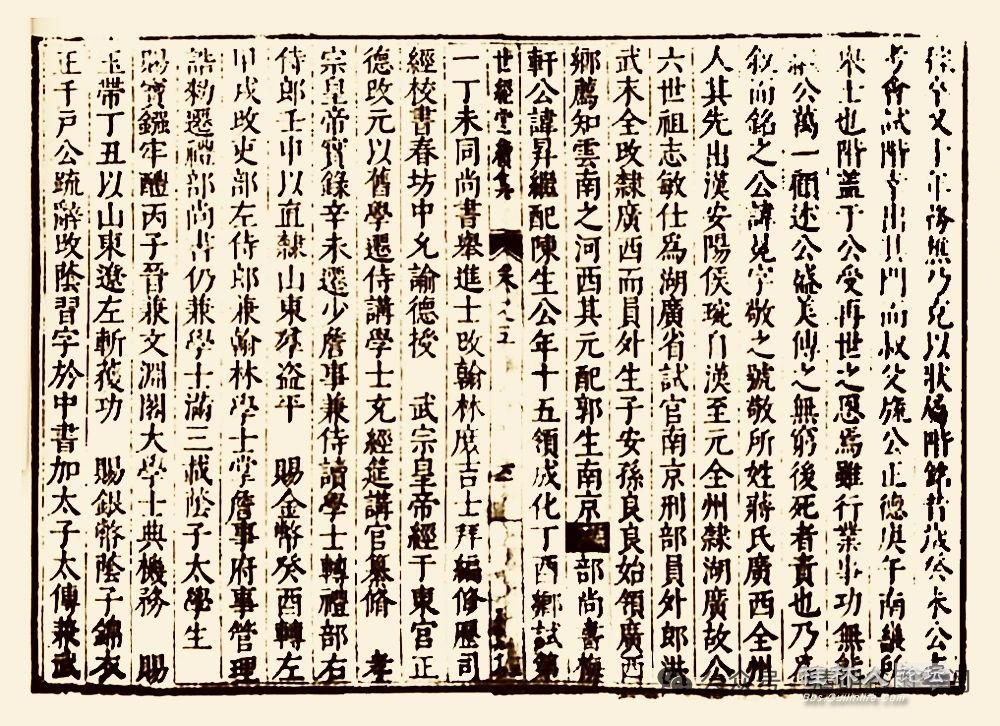 又十年海乃克以狀屬階銘昔歲癸未公主
考會試階幸出其門而叔父旒公正德庚午南畿所
舉士也階盖于公受再世之恩焉雖行業事功無能
公萬一顧述公盛美傳之無窮後死者責也乃為
敘而銘之公諱冕字敬之號敬所姓蔣氏廣西全州
人其先出漢安陽侯琬自漢至元全州隸湖廣故公
六世祖志敏仕為湖廣省試官南京刑部員外郎洪
武末全改隸廣西而員外生子安孫良良始領廣西
鄉薦知雲南之河西其元配郭生南京部尚書梅
軒公諱昇繼配陳生公公年十五領成化丁酉鄉試第
世經堂續集 卷之五
一丁未同尚書舉進士改翰林庶吉士拜編修歷司
經校書春坊中允諭德授 武宗皇帝經于東宮正
德改元以舊學遷侍講學士充經筵講官纂修 孝
宗皇帝實錄辛未遷少詹事兼侍讀學士轉禮部右
侍郎壬申以直隸山東殄盗平 賜金幣癸酉轉左
甲戌改吏部左侍郎兼翰林學士掌詹事府事管理
誥勑遷禮部尚書仍兼學士滿三載蔭子太學生
賜寶鏹牢醴丙子晉兼文淵閣大學士典機務 賜
玉帶丁丑以山東遼左斬獲功 賜銀幣蔭子錦衣
正千戶公疏辭改蔭習字於中書加太子太傅兼武
桂林人论坛
Bbs.Guilinlife.com